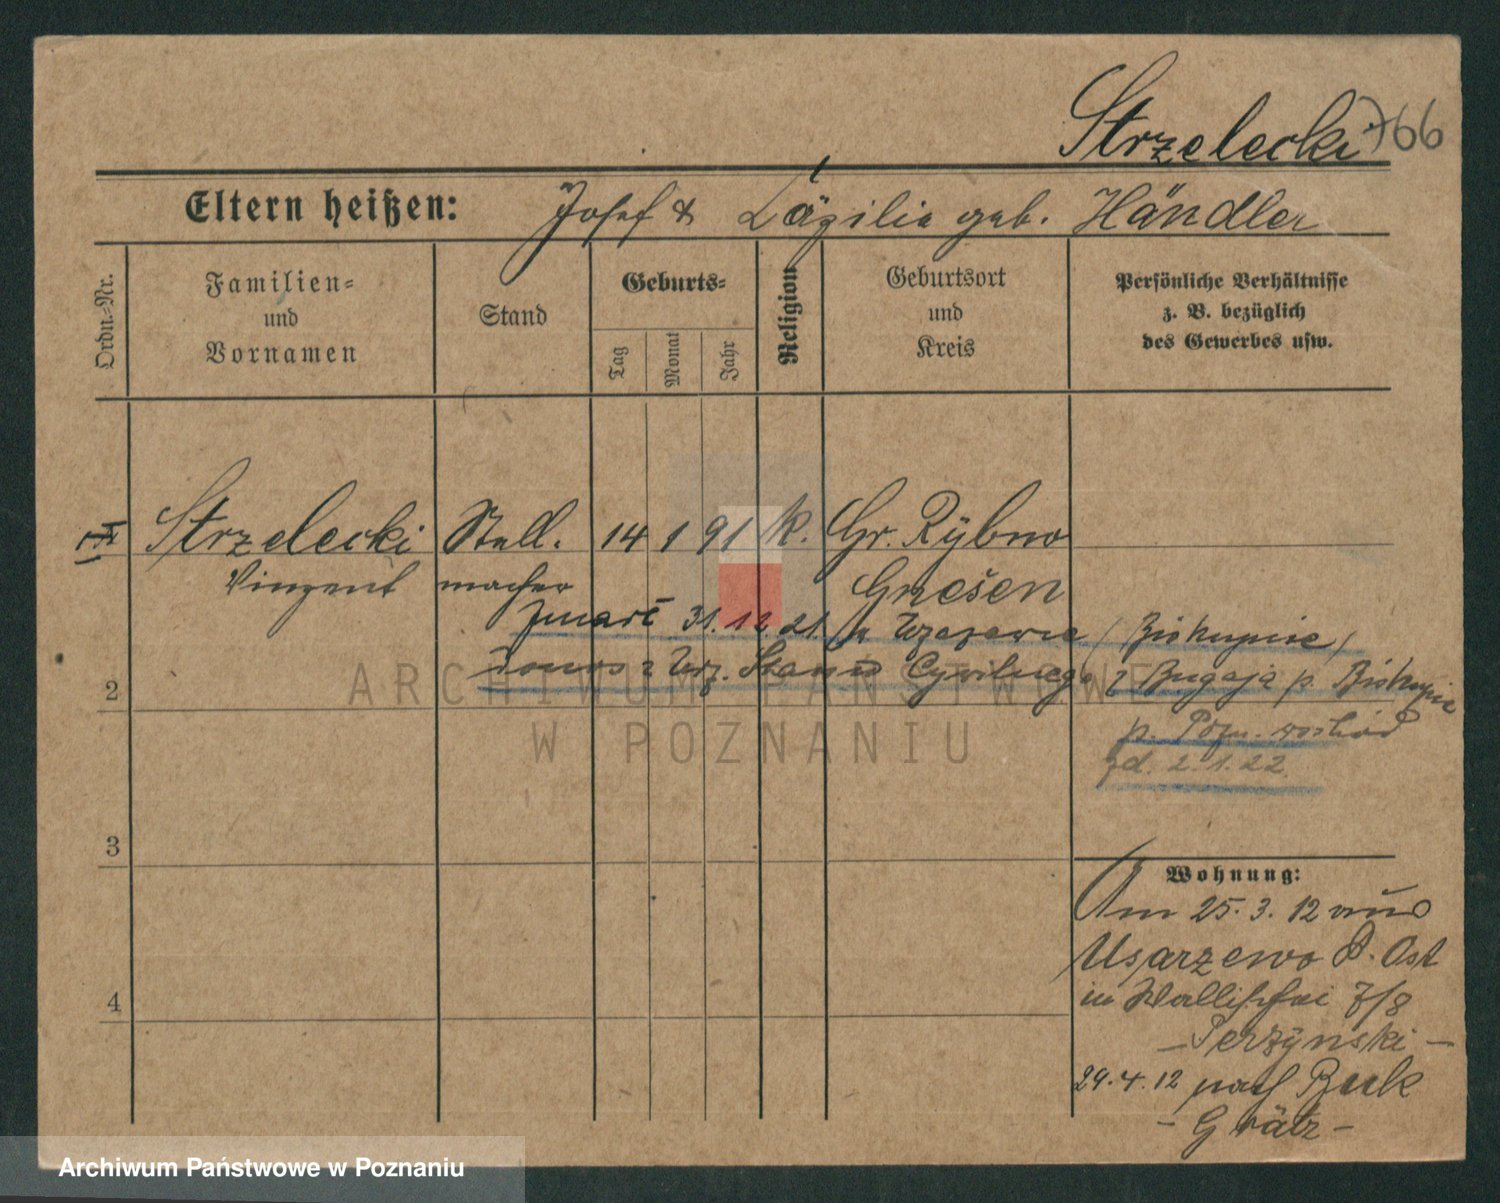 Strzelecki 766
Eltern heißen: Josef & Zäzilie geb. Händler
Ordn.-Nr.
Familien-
und
Vornamen
Stand
Geburts-
Tag
Monat
Jahr
Religion
Geburtsort
und
Kreis
Persönliche Verhältnisse
z. B. bezüglich
des Gewerbes usw.
Strzelecki Stell- 14 1 91 k. Gr. Rybno
Vinzent macher Gnesen
Zmarł 31.12.21. w (Biskupice)
donos z Urz. Stanu Cywilnego z Bugaja p. Biskupice
p. Pozn. wschód
zd. 2.1.22
2
3
4
Wohnung:
Am 25.3.12 aus
Usarzewo P. Ost
in Wallischei 7/8
- Perzynski -
29.4.12 nach Buk
- Grätz -
ARCHIWUM PAŃSTWOWE
W POZNANIU
Archiwum Państwowe w Poznaniu